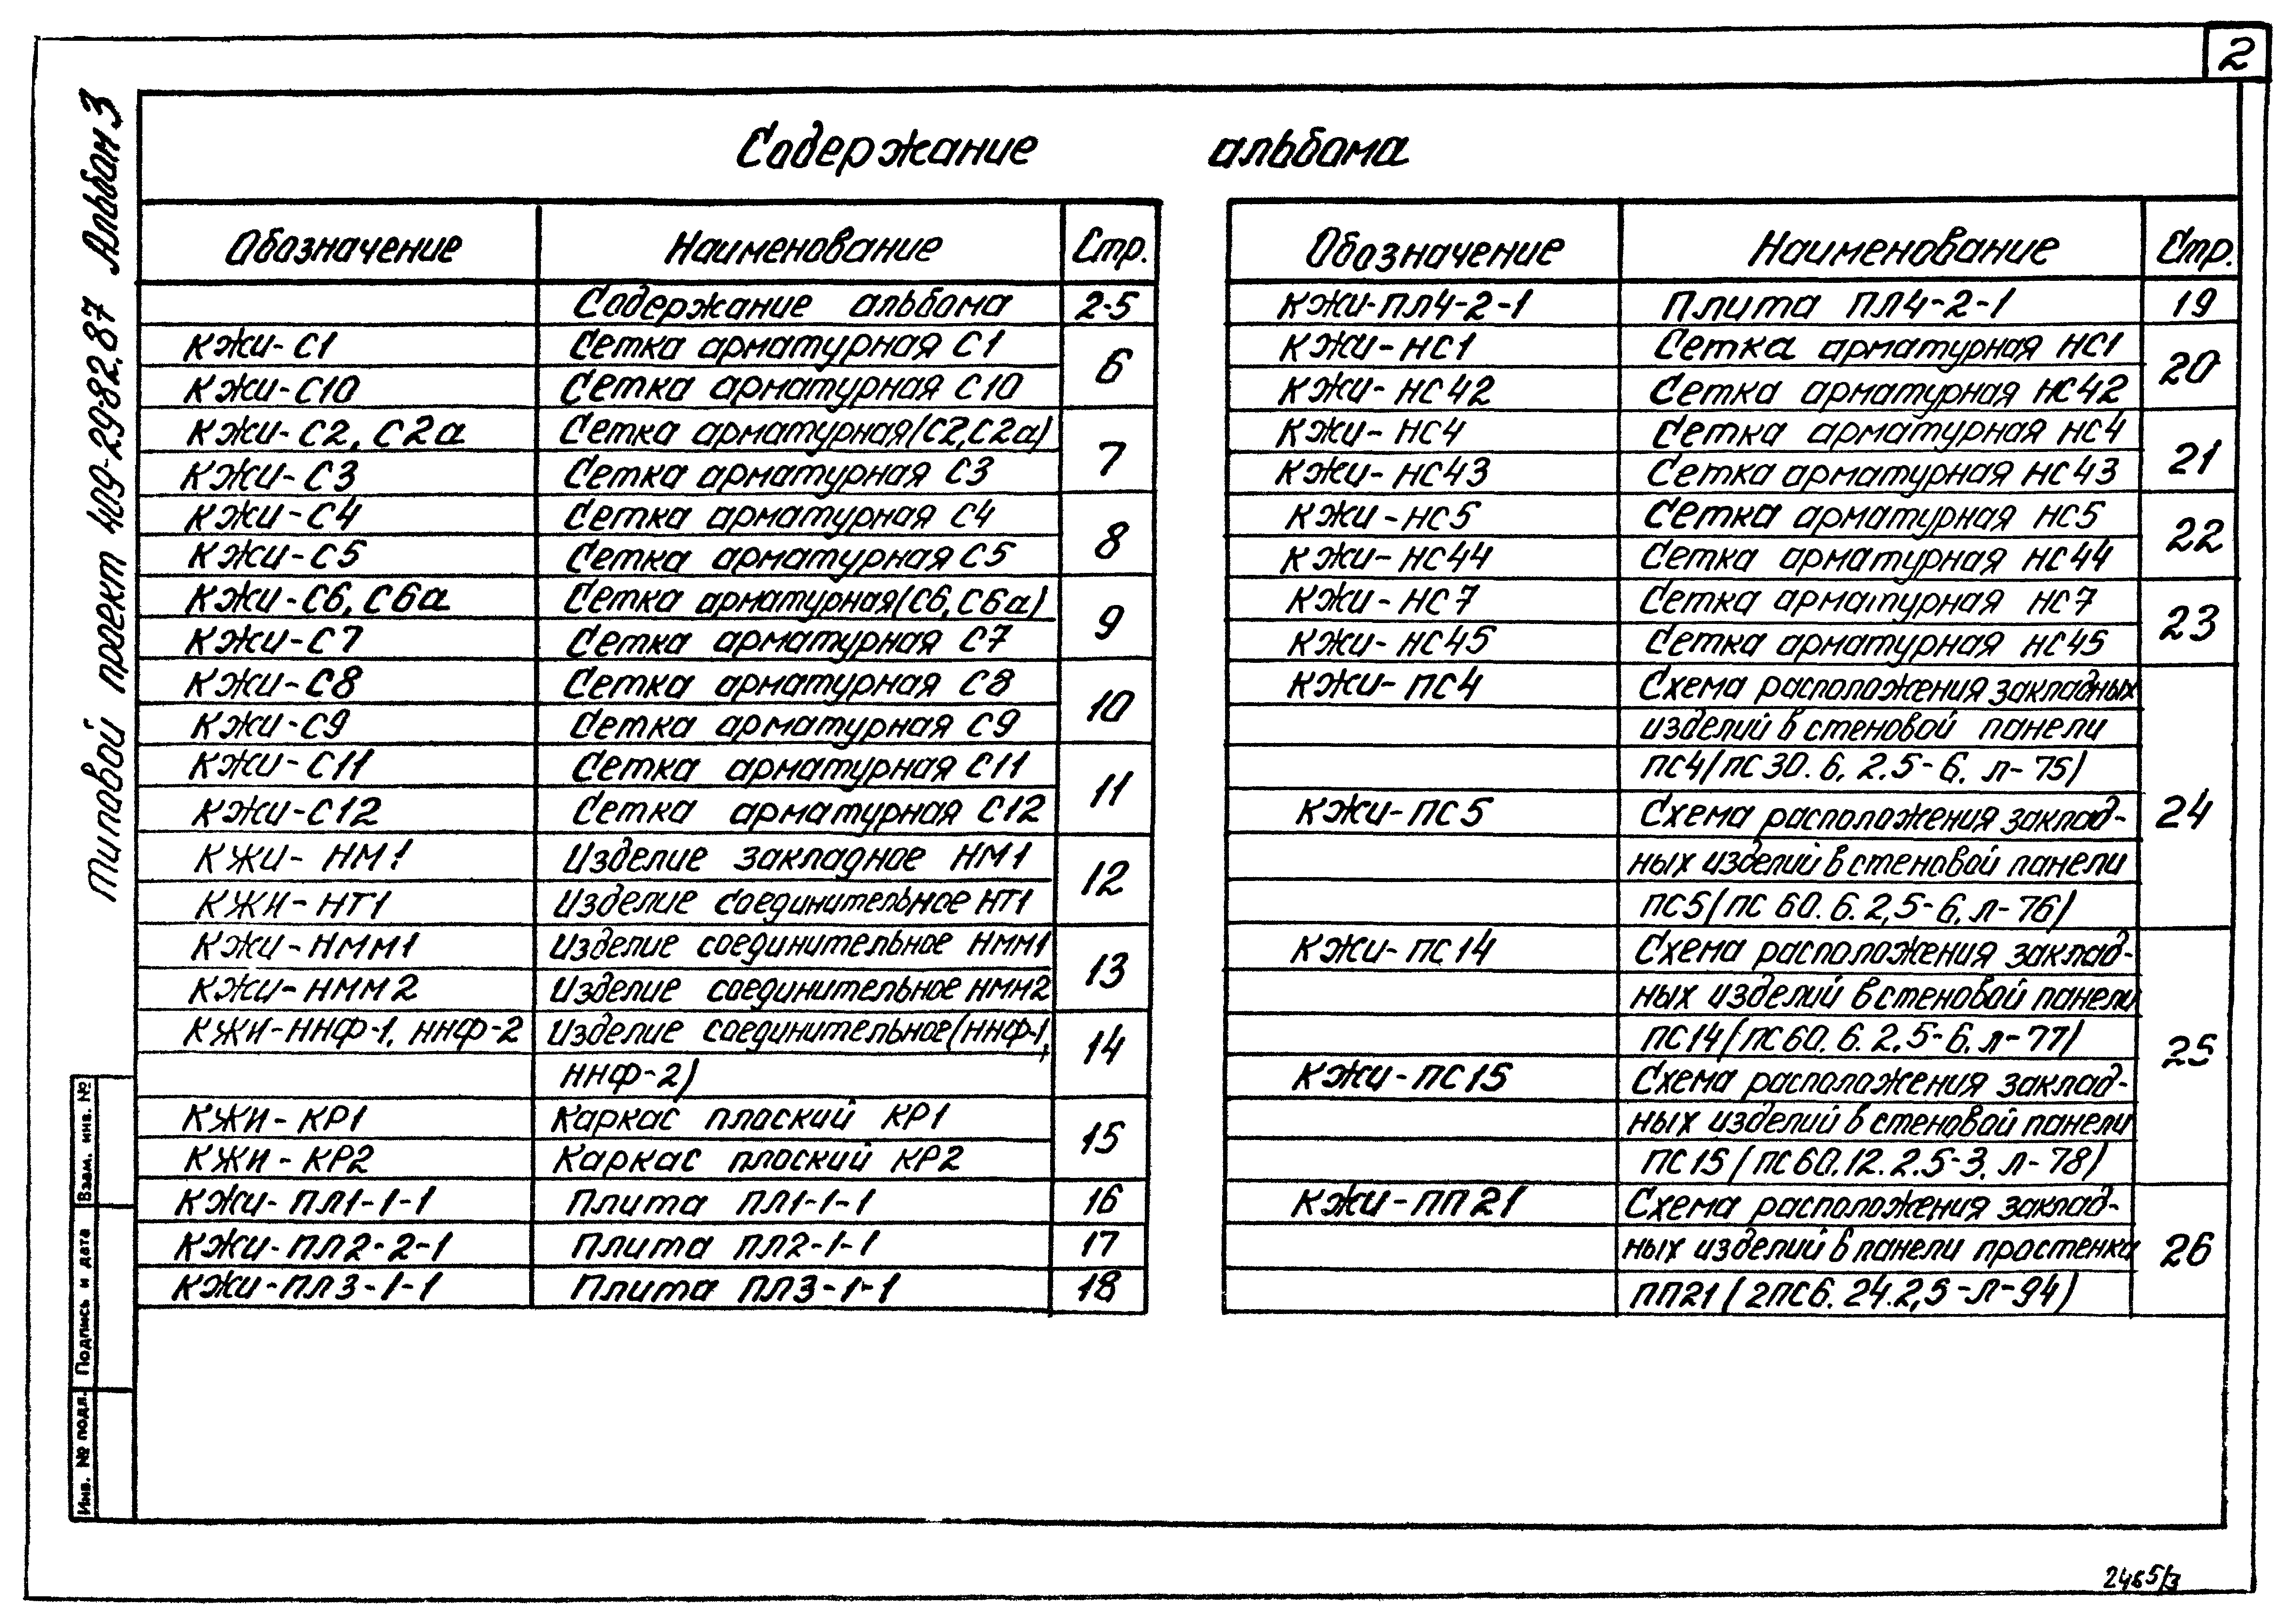 2
Типовой проект 409-29-82.87 Альбом 3
Содержание альбома
Обозначение Наименование Стр.
Содержание альбома 2-5
КЖИ-С1 Сетка арматурная С1 6
КЖИ-С10 Сетка арматурная С10
КЖИ-С2, С2а Сетка арматурная(С2,С2а) 7
КЖИ-С3 Сетка арматурная С3
КЖИ-С4 Сетка арматурная С4 8
КЖИ-С5 Сетка арматурная С5
КЖИ-С6, С6а Сетка арматурная(С6,С6а) 9
КЖИ-С7 Сетка арматурная С7
КЖИ-С8 Сетка арматурная С8 10
КЖИ-С9 Сетка арматурная С9
КЖИ-С11 Сетка арматурная С11 11
КЖИ-С12 Сетка арматурная С12
КЖИ-НМ1 Изделие закладное НМ1 12
КЖИ-НТ1 Изделие соединительное НТ1
КЖИ-НММ1 Изделие соединительное НММ1 13
КЖИ-НММ2 Изделие соединительное НММ2
КЖИ-ННФ-1, ННФ-2 Изделие соединительное(ННФ-1, 14
ННФ-2)
КЖИ-КР1 Каркас плоский КР1 15
КЖИ-КР2 Каркас плоский КР2
КЖИ-ПЛ1-1-1 Плита ПЛ1-1-1 16
КЖИ-ПЛ2-2-1 Плита ПЛ2-1-1 17
КЖИ-ПЛ3-1-1 Плита ПЛ3-1-1 18
Обозначение Наименование Стр.
КЖИ-ПЛ4-2-1 Плита ПЛ4-2-1 19
КЖИ-НС1 Сетка арматурная НС1 20
КЖИ-НС42 Сетка арматурная НС42
КЖИ-НС4 Сетка арматурная НС4 21
КЖИ-НС43 Сетка арматурная НС43
КЖИ-НС5 Сетка арматурная НС5 22
КЖИ-НС44 Сетка арматурная НС44
КЖИ-НС7 Сетка арматурная НС7 23
КЖИ-НС45 Сетка арматурная НС45
КЖИ-ПС4 Схема расположения закладных 24
изделий в стеновой панели
ПС4/ПС30.6.2.5-6.Л-75)
КЖИ-ПС5 Схема расположения заклад-
ных изделий в стеновой панели
ПС5/ПС 60.6.2,5-6.Л-76)
КЖИ-ПС14 Схема расположения заклад- 25
ных изделий в стеновой панели
ПС14/ПС60.6.2.5-6.Л-77)
КЖИ-ПС15 Схема расположения заклад-
ных изделий в стеновой панели
ПС15/ПС60.12.2.5-3.Л-78)
КЖИ-ПП21 Схема расположения заклад- 26
ных изделий в панели простенка
ПП21/2ПС6.24.2,5-Л-94)
Инв. № подл. Подпись и дата Взам. инв. №
2465/3